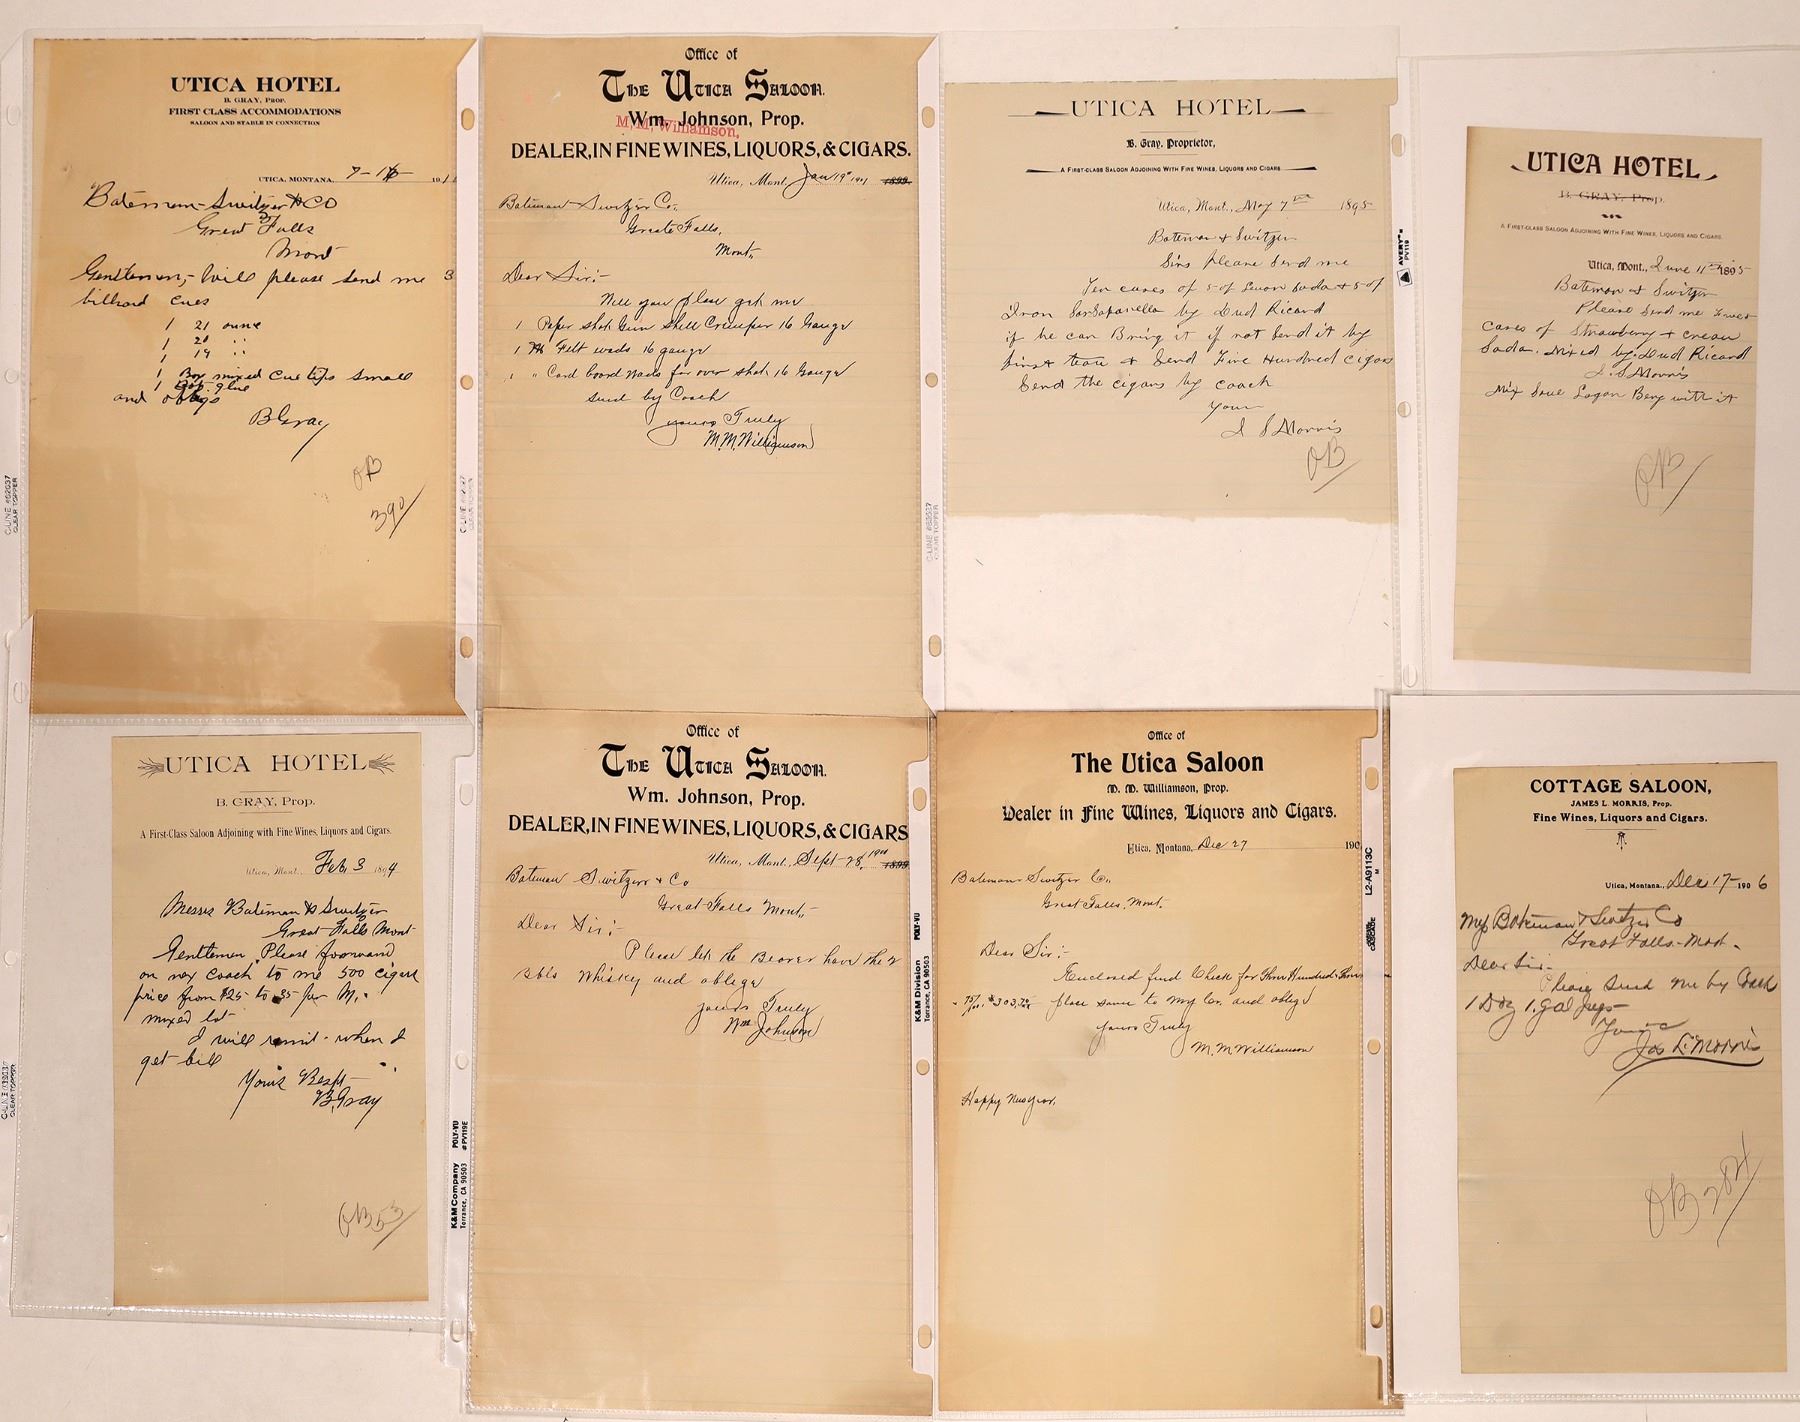 UTICA HOTEL
B. GRAY, Prop.
FIRST CLASS ACCOMMODATIONS
SALOON AND STABLE IN CONNECTION
UTICA, MONTANA, 7-16 191
Bateman-Switzer & CO
Great Falls
Mont
Gentlemen, Will please send me 3
billiard cues
1 21 ounce
1 20 "
1 19 "
1 Box mixed cue tips small
1 glue
and oblige
B Gray
OB
390/
Office of
The Utica Saloon.
Wm. Johnson, Prop.
M. M. Williamson,
DEALER, IN FINE WINES, LIQUORS, & CIGARS.
Utica, Mont. Jan 19" 1901 1899.
Bateman Switzer Co.,
Greate Falls,
Mont.
Dear Sir:-
Will you please get me
1 Paper shot Gun Shell Crimper 16 Gauge
1 M Felt wads 16 gauge
1 " Card board Wads for over shot 16 Gauge
send by Coach
Yours Truly
M. M. Williamson
UTICA HOTEL
B. Gray, Proprietor,
A FIRST-CLASS SALOON ADJOINING WITH FINE WINES, LIQUORS AND CIGARS
Utica, Mont., May 7th 1895
Bateman & Switzer
Sirs please send me
Ten cases of 5 of Lemon Soda & 5 of
Iron Sarsaparella by Dud Ricard
if he can Bring it if not send it by
first team & send Five Hundred cigars
Send the cigars by coach
Yours
J S Morris
OB
AVERY
PV119
UTICA HOTEL
B. GRAY, Prop.
A FIRST-CLASS SALOON ADJOINING WITH FINE WINES, LIQUORS AND CIGARS.
Utica, Mont., June 11th 1895
Bateman & Switzer
Please send me
cases of Strawberry & cream
Soda. Mixed by Dud Ricard
J. S Morris
Mix some Logan Bery with it
OB
C-LINE #62037
CLEAR TOPPER
UTICA HOTEL
B. GRAY, Prop.
A First-Class Saloon Adjoining with Fine Wines, Liquors and Cigars.
Utica, Mont., Feb, 3 1894
Messrs Bateman & Switzer
Great Falls Mont
Gentlemen, Please forward
on nex coach to me 500 cigars
price from $25 to 35 per M.
mixed lot
I will remit when I
get bill
Yours Respt
B. Gray
OB 53
K&M Company POLY-VU
Torrance, CA 90503 #PV119E
Office of
The Utica Saloon.
Wm. Johnson, Prop.
DEALER, IN FINE WINES, LIQUORS, & CIGARS
Utica, Mont. Sept 28, 1900 1899
Bateman Switzer & Co
Great Falls Mont,
Dear Sir:-
Please let the Bearer have the 2
Bbls Whiskey and oblige
Yours Truly
Wm Johnson
K&M Division POLY-VU
Torrance, CA 90503
Office of
The Utica Saloon
M. M. Williamson, Prop.
Dealer in Fine Wines, Liquors and Cigars.
Utica, Montana, Dec 27 190
Bateman Switzer Co.,
Great Falls, Mont.
Dear Sir:-
Enclosed find Check for Three Hundred & Three
75/100, $303.75 place same to my Cr. and oblige
Yours Truly
M. M. Williamson
Happy New Year.
L2-A9113C
COTTAGE SALOON,
JAMES L. MORRIS, Prop.
Fine Wines, Liquors and Cigars.
Utica, Montana., Dec 17- 1906
Mys Bateman & Switzer Co
Great Falls-Mont.
Dear Sir-
Please send me by Coach
1 Doz 1. gal Jugs-
Yours
Jas L. Morris
OB 284